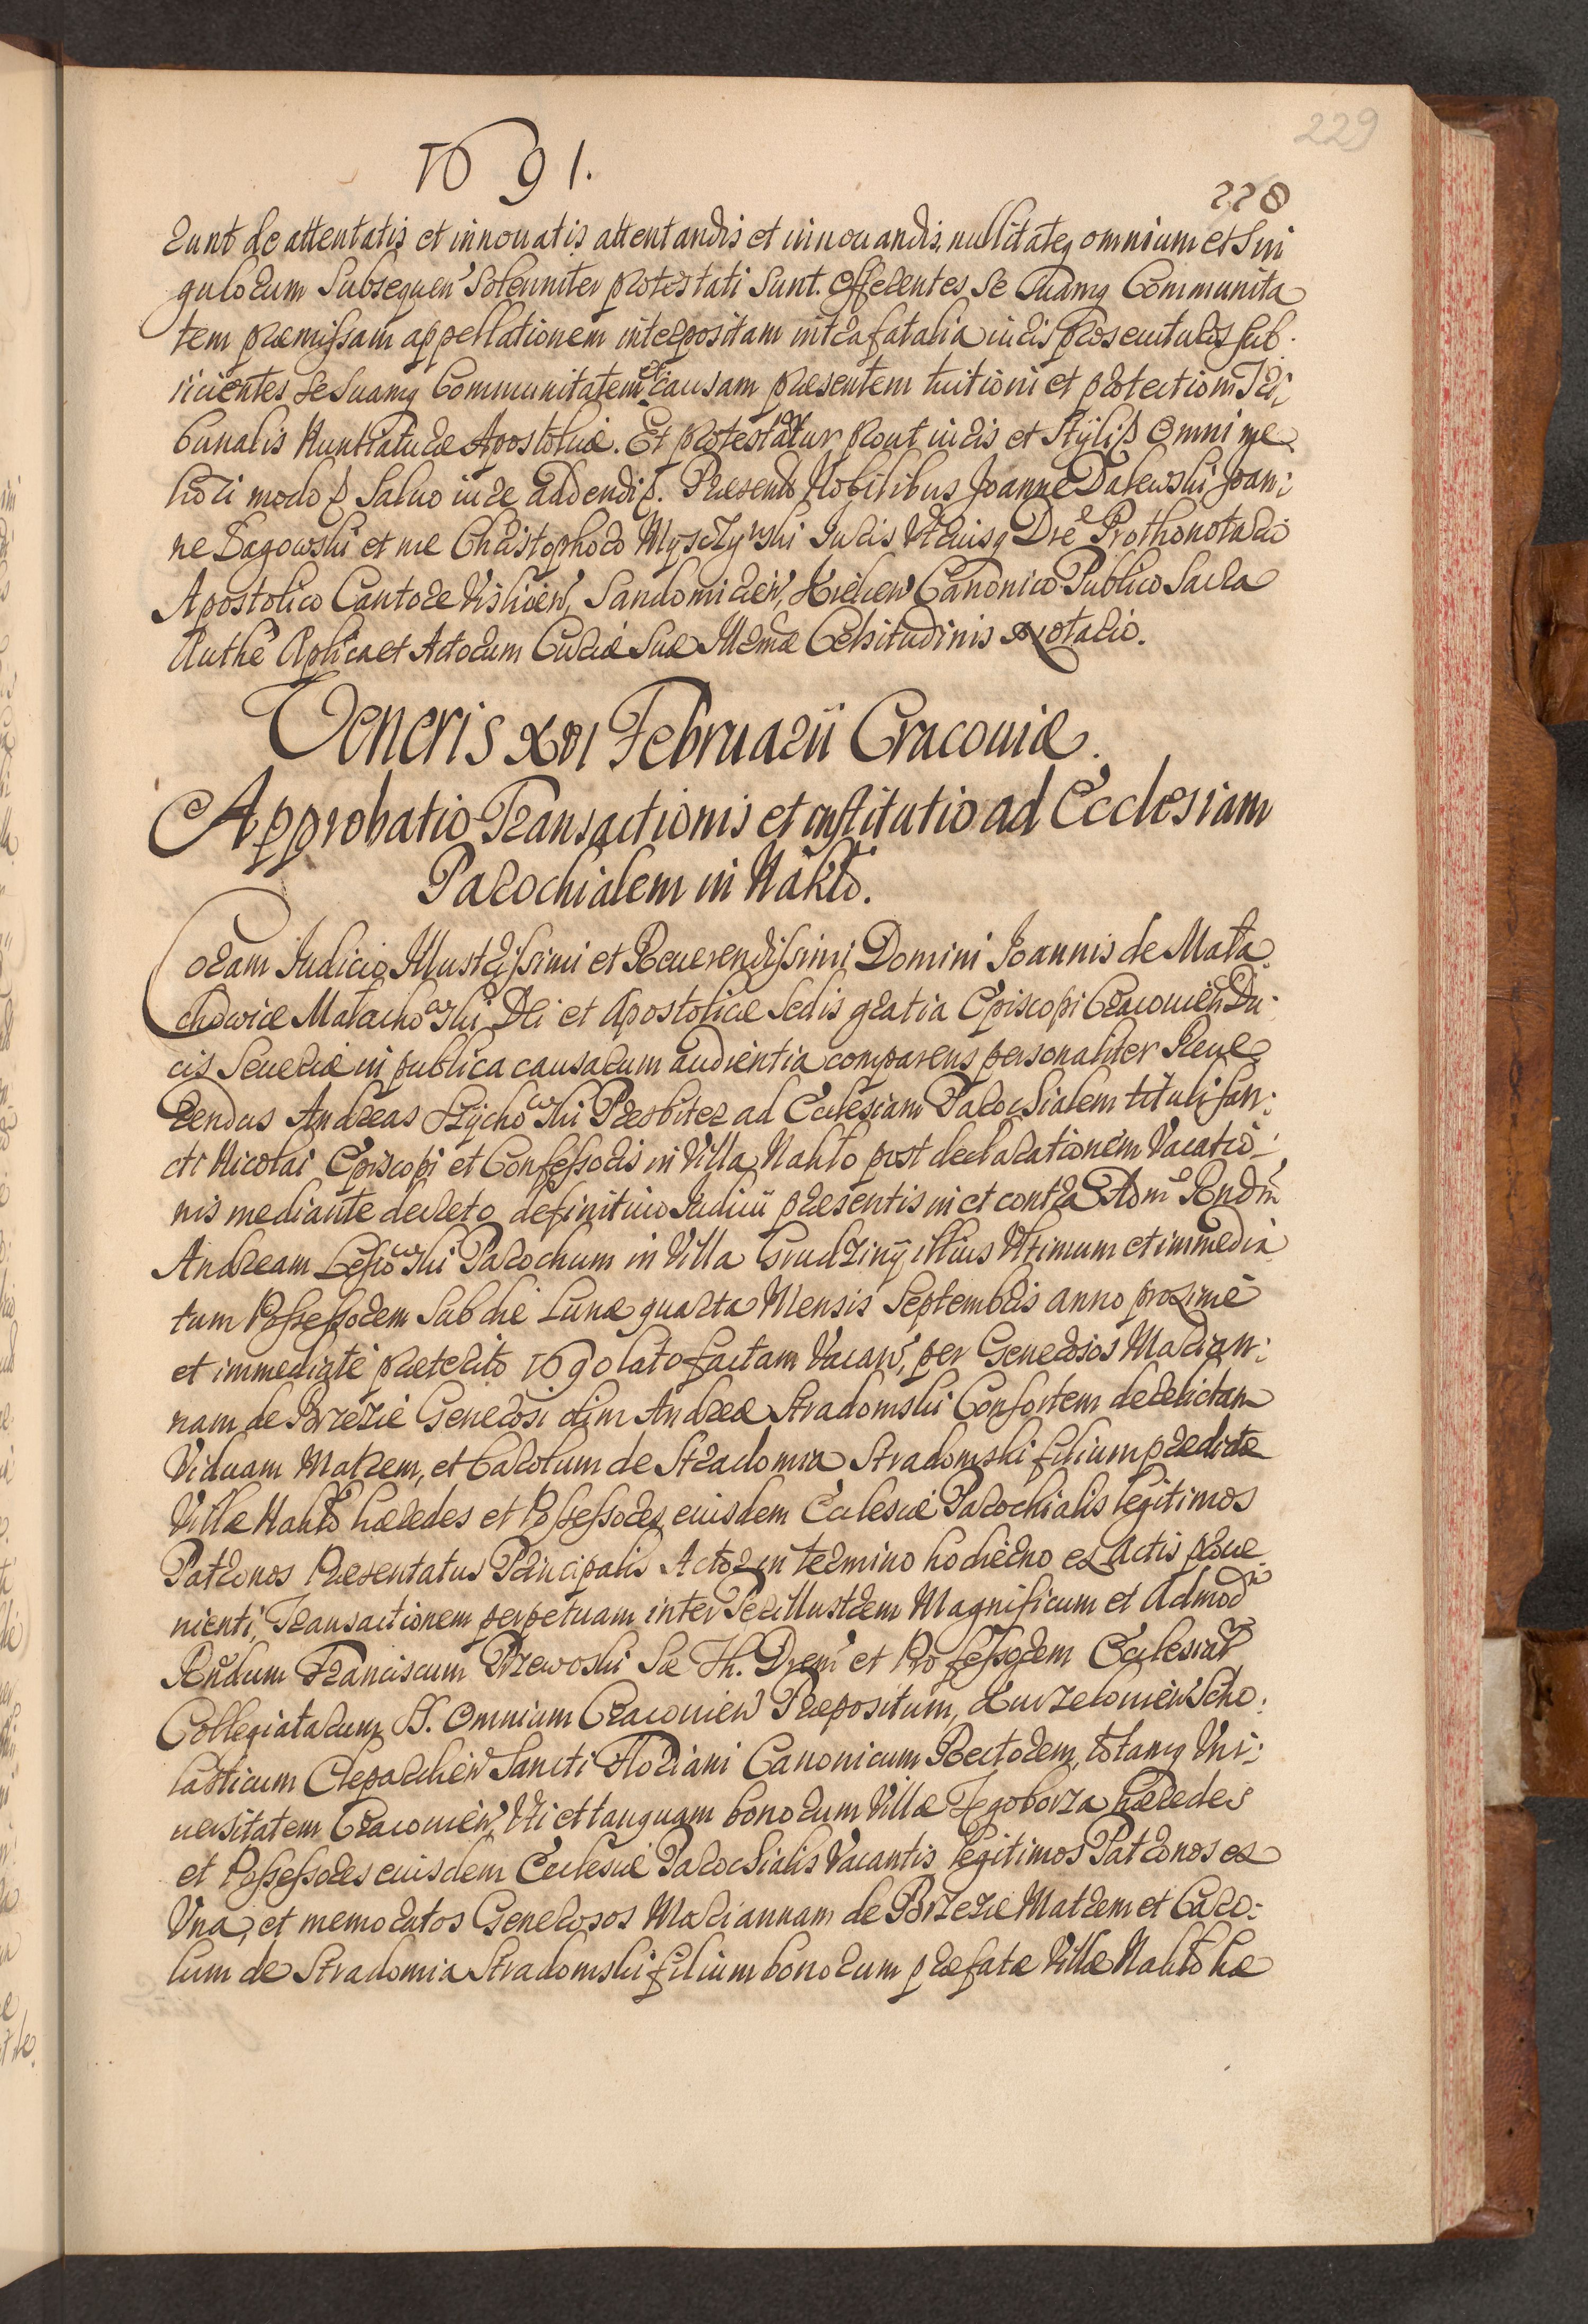 229
1691.
228
runt de attentatis et innouatis attentandis et innouandis, nullitateq omnium et Sin
gulorum Subsequen Solenniter protestati Sunt. Offerentes Se Suamq Communita
tem præmissam appellationem interpositam intra fatalia iuris prosecuturos Sub:
iicientes Se Suamq Communitatem et causam præsentem tuitioni et protectioni Tri:
bunalis Nuntiaturæ Apostolicæ. Et protestatur prout iuris et Styli ẞ Omni me
liori modo ẞ Saluo iure addendi ẞ. Præsentibus Nobilibus Joanne Dalewski Joan:
ne Sagowski et me Christophoro Mysczynski Iuris Vtriusq Dre Prothonotario
Apostolico Cantore Vislicien, Sandomirien, Kielcen Canonico Publico Sacra
Authe Aplica et Actorum Curiæ Suæ Illmæ Celsitudinis Notario.
Veneris XVI Februarii Cracouiæ.
Approbatio Transactionis et institutio ad Ecclesiam
Parochialem in Nákło.
Coram Iudicio Illustrissimi et Reuerendissimi Domini Ioannis de Mała
chowice Małachowski Dei et Apostolicæ Sedis gratia Episcopi Cracouien Du:
cis Seueriæ in publica causarum audientia comparens personaliter Reue
rendus Andreas Szychowski Presbiter ad Ecclesiam Parochialem tituli San:
cti Nicolai Episcopi et Confessoris in Villa Nakło post declarationem Vacatio:
nis mediante decreto definitiuo Iudicii præsentis in et contra Adm Rndm
Andream Lesiowski Parochum in Villa Grudziny illius Vltimum et immedia
tum Possessorem Sub die Lunæ quarta Mensis Septembris anno proximè
et immediatè præterito 1690 lato factam Vacan, per Generosos Marian:
nam de Brzezie Generosi olim Andreæ Stradomski Consortem derelictam
Viduam Matrem, et Carolum de Stradomia Stradomski filium prædictæ
Villæ Nakło hæredes et Possessores eiusdem Ecclesiæ Parochialis legitimos
Patronos Præsentatus Principalis Actor in termino hodierno ex Actis proue
nienti, Transactionem perpetuam inter Perillustrem Magnificum et Admod
Rndum Franciscum Przewoski Sæ Th. Drem et Professorem Ecclesiar
Collegiatarum SS. Omnium Cracouien Præpositum, Kurzelouien Scho:
lasticum Cleparchien Sancti Floriani Canonicum Rectorem, totamq Vni:
uersitatem Cracouien, Vti et tanquam bonorum Villæ Zegoborza hæredes
et Possessores eiusdem Ecclesiæ Parochialis Vacantis legitimos Patronos ex
Vna, et memoratos Generosos Mariannam de Brzezie Matrem et Caro:
lum de Stradomia Stradomski filium bonorum præfatæ Villæ Nakło hæ